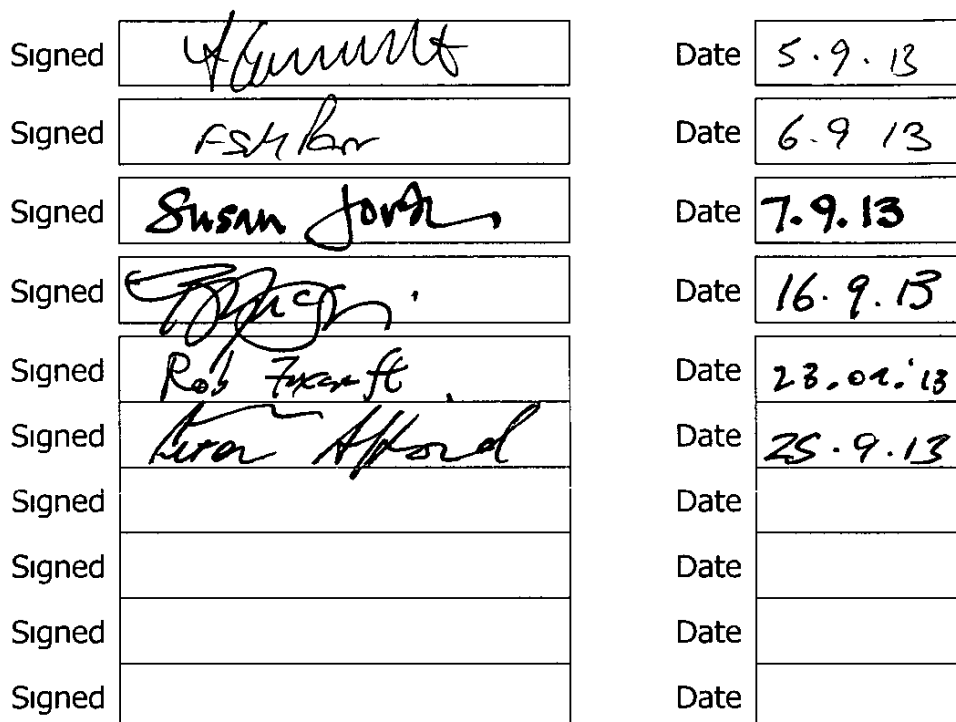 Signed Date 5.9.13
Signed Date 6.9 13
Signed Susan Date 7.9.13
Signed Date 16.9.13
Signed Rob Date 23.09.'13
Signed Afford Date 25.9.13
Signed Date
Signed Date
Signed Date
Signed Date